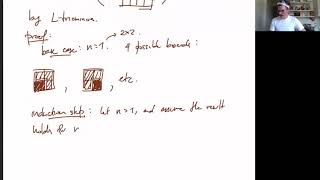 by L-trominoes.
proof:
→ 2×2
base case: n=1. 4 possible boards:
, , etc.
induction step: let n>1, and assume the result
holds for n